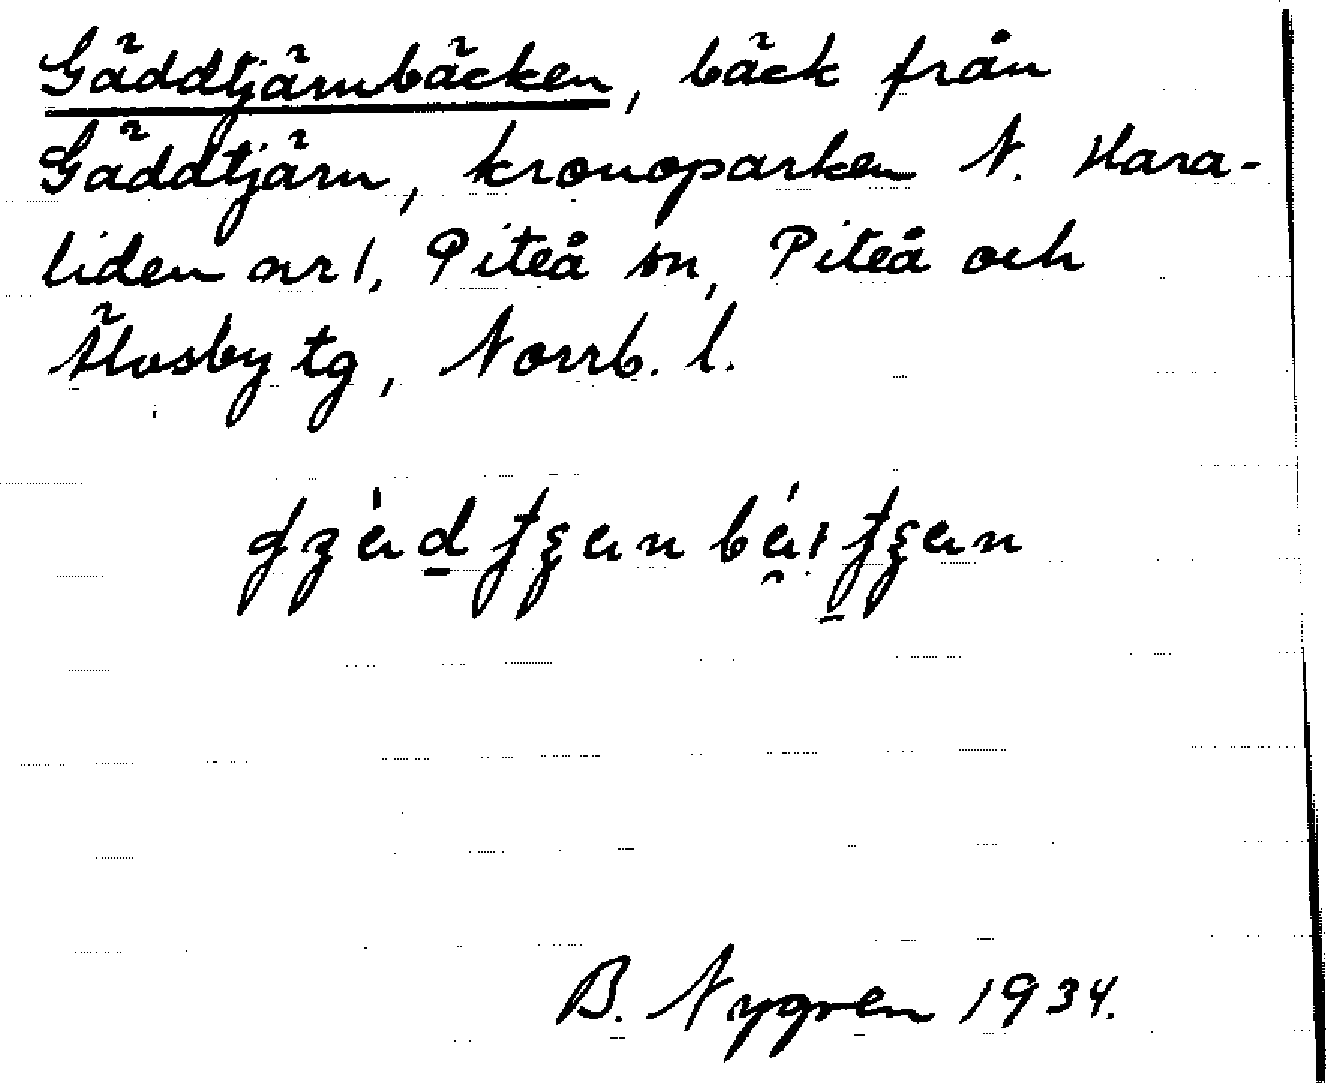 Gäddtjärnbäcken, bäck från
Gäddtjärn, kronoparken N. Hara-
liden nr 1, Piteå sn, Piteå och
Älvsby tg, Norrb. l.
B. Nygren 1934.